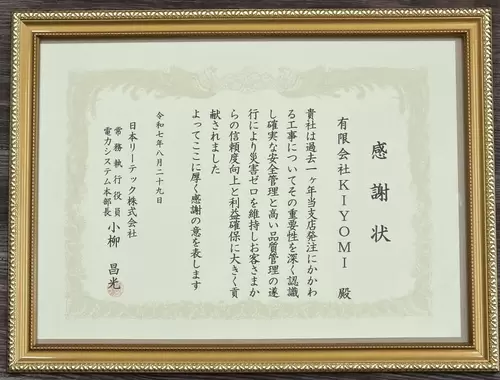 感謝状
有限会社KIYOMI 殿
貴社は過去一ヶ年当支店発注にかかわ
る工事についてその重要性を深く認識
し確実な安全管理と高い品質管理の遂
行により災害ゼロを維持しお客さまか
らの信頼度向上と利益確保に大きく貢
献されました
よってここに厚く感謝の意を表します
令和七年八月二十九日
日本リーテック株式会社
常務執行役員
電力システム本部長 小柳 昌光